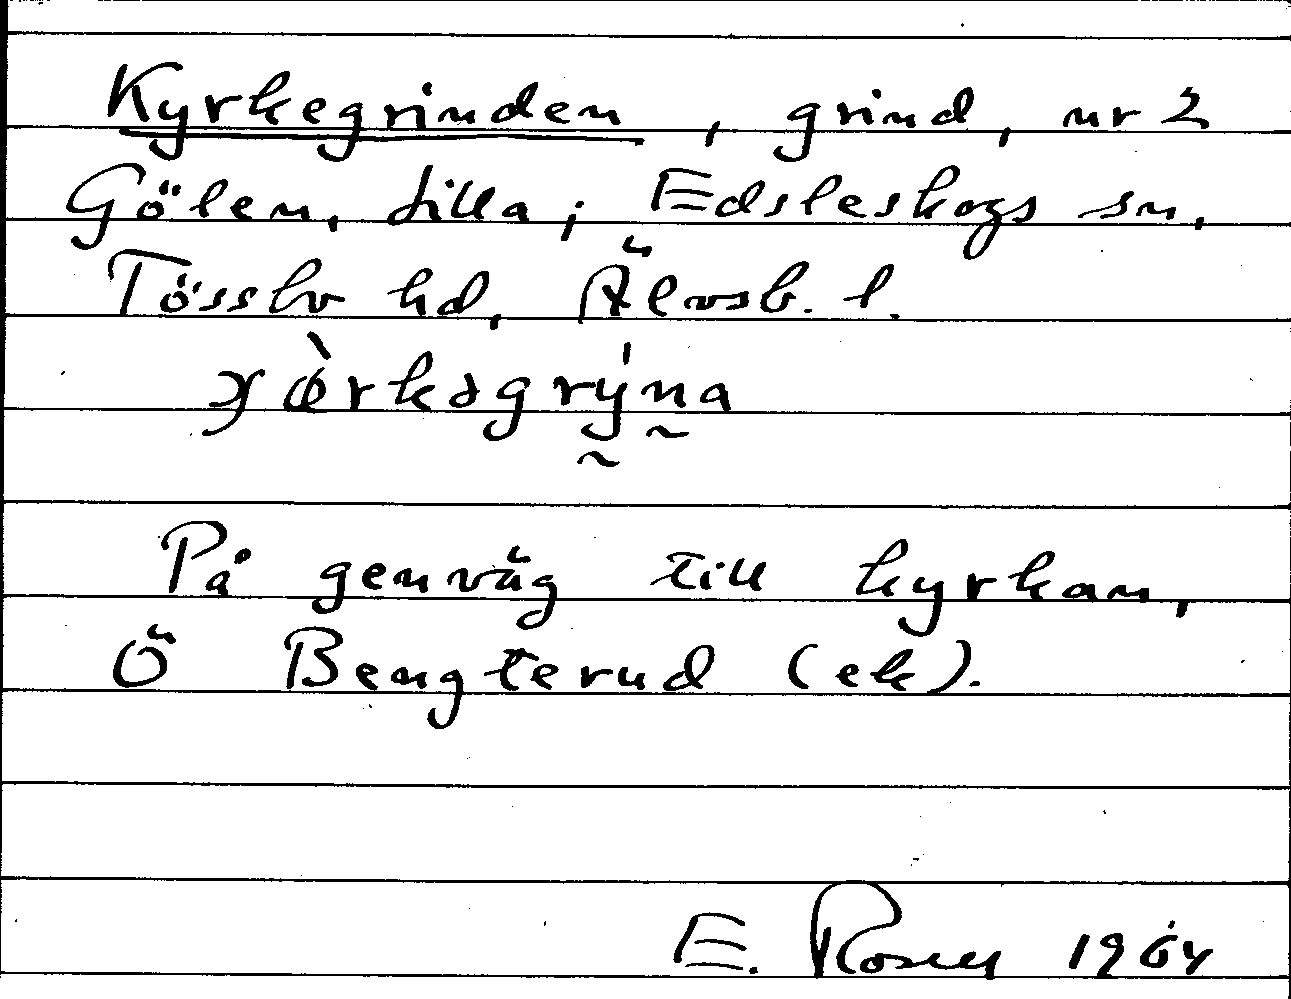 Kyrkegrinden, grind, nr 2
Gölen, Lilla; Edsleskogs sn,
Tössbo hd, Älvsb. l.
På genväg till kyrkan,
Ö Bengterud (ek).
E. Rosen 1964